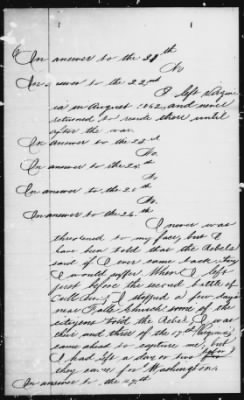 In answer to the 21th
No
In answer to the 22nd
I left Virgin
ia in August 1862, and never
returned to reside there until
after the war.
In answer to the 23rd
No.
In answer to the 24th
No.
In answer to the 25th
No.
In answer to the 26th
I never was
threatened to my face, but I
have been told that the Rebels
said if I ever came back they
I would suffer. When I left
just before the second battle of
I stopped a few days
near Falls Church some of the
citizens told the Rebels I was
ther and three of the 17th Virginia
came ahead to capture me, but
I had left a day or two before
they came for Washington.
In answer to the 27th